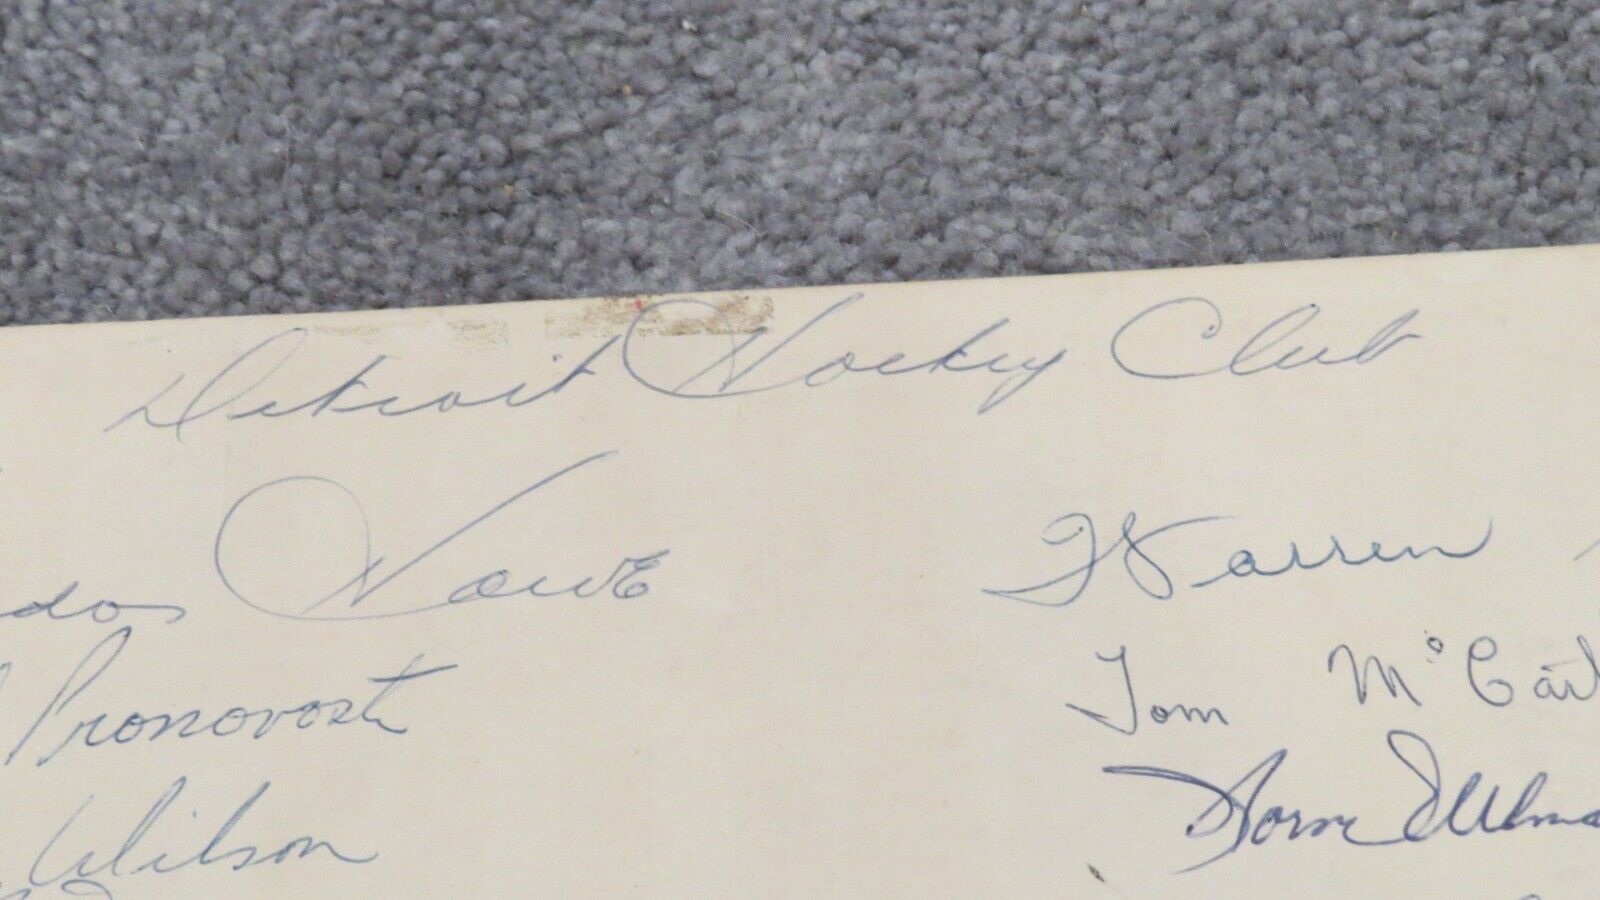 Detroit Hockey Club
Howe
Warren
Pronovost
Tom McCart
Wilson
Norm Ullma